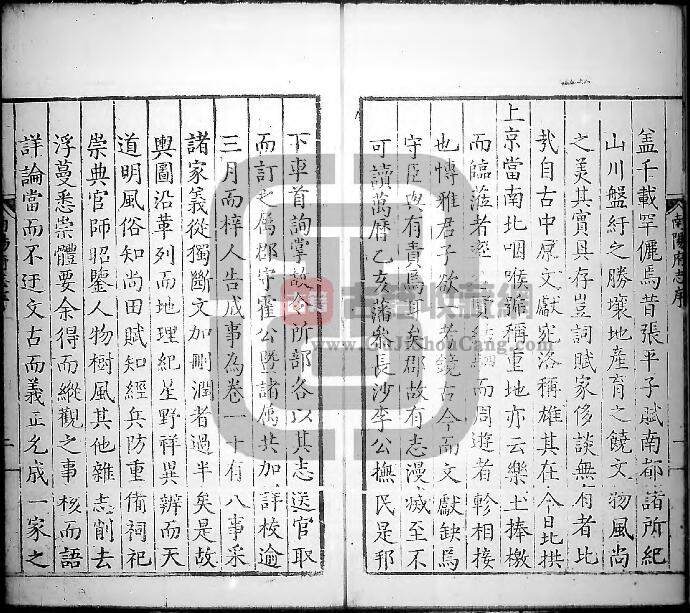 盖千載罕儷焉昔張平子賦南都諸所紀
山川盤紆之勝壤地產育之饒文物風尚
之美其實具存豈詞賦家侈談無有者比
㦲自古中原文獻宛洛稱雄其在今日北拱
上京當南北咽喉號稱重地亦云樂土捧檄
而臨蒞者 而周遊者軫相接
也博雅君子欲 鏡古今而文獻缺焉
守臣與有責焉耳矣郡故有志漫滅至不
可讀萬曆乙亥藩參長沙李公撫民是邦
南陽府志序
下車首詢掌故令所部各以其志送官取
而訂之属郡守霍公暨諸属共加評校逾
三月而梓人告成事為卷一十有八事采
諸家義從獨斷文加刪潤者過半矣是故
輿圖沿革列而地理紀星野祥異辨而天
道明風俗知尚田賦知經兵防重俻祠祀
崇典官師昭鑒人物樹風其他雜志削去
浮蔓悉崇體要余得而縱觀之事核而語
詳論當而不迂文古而義正允成一家之
二
古籍收藏網
www.GuJiShouCang.com